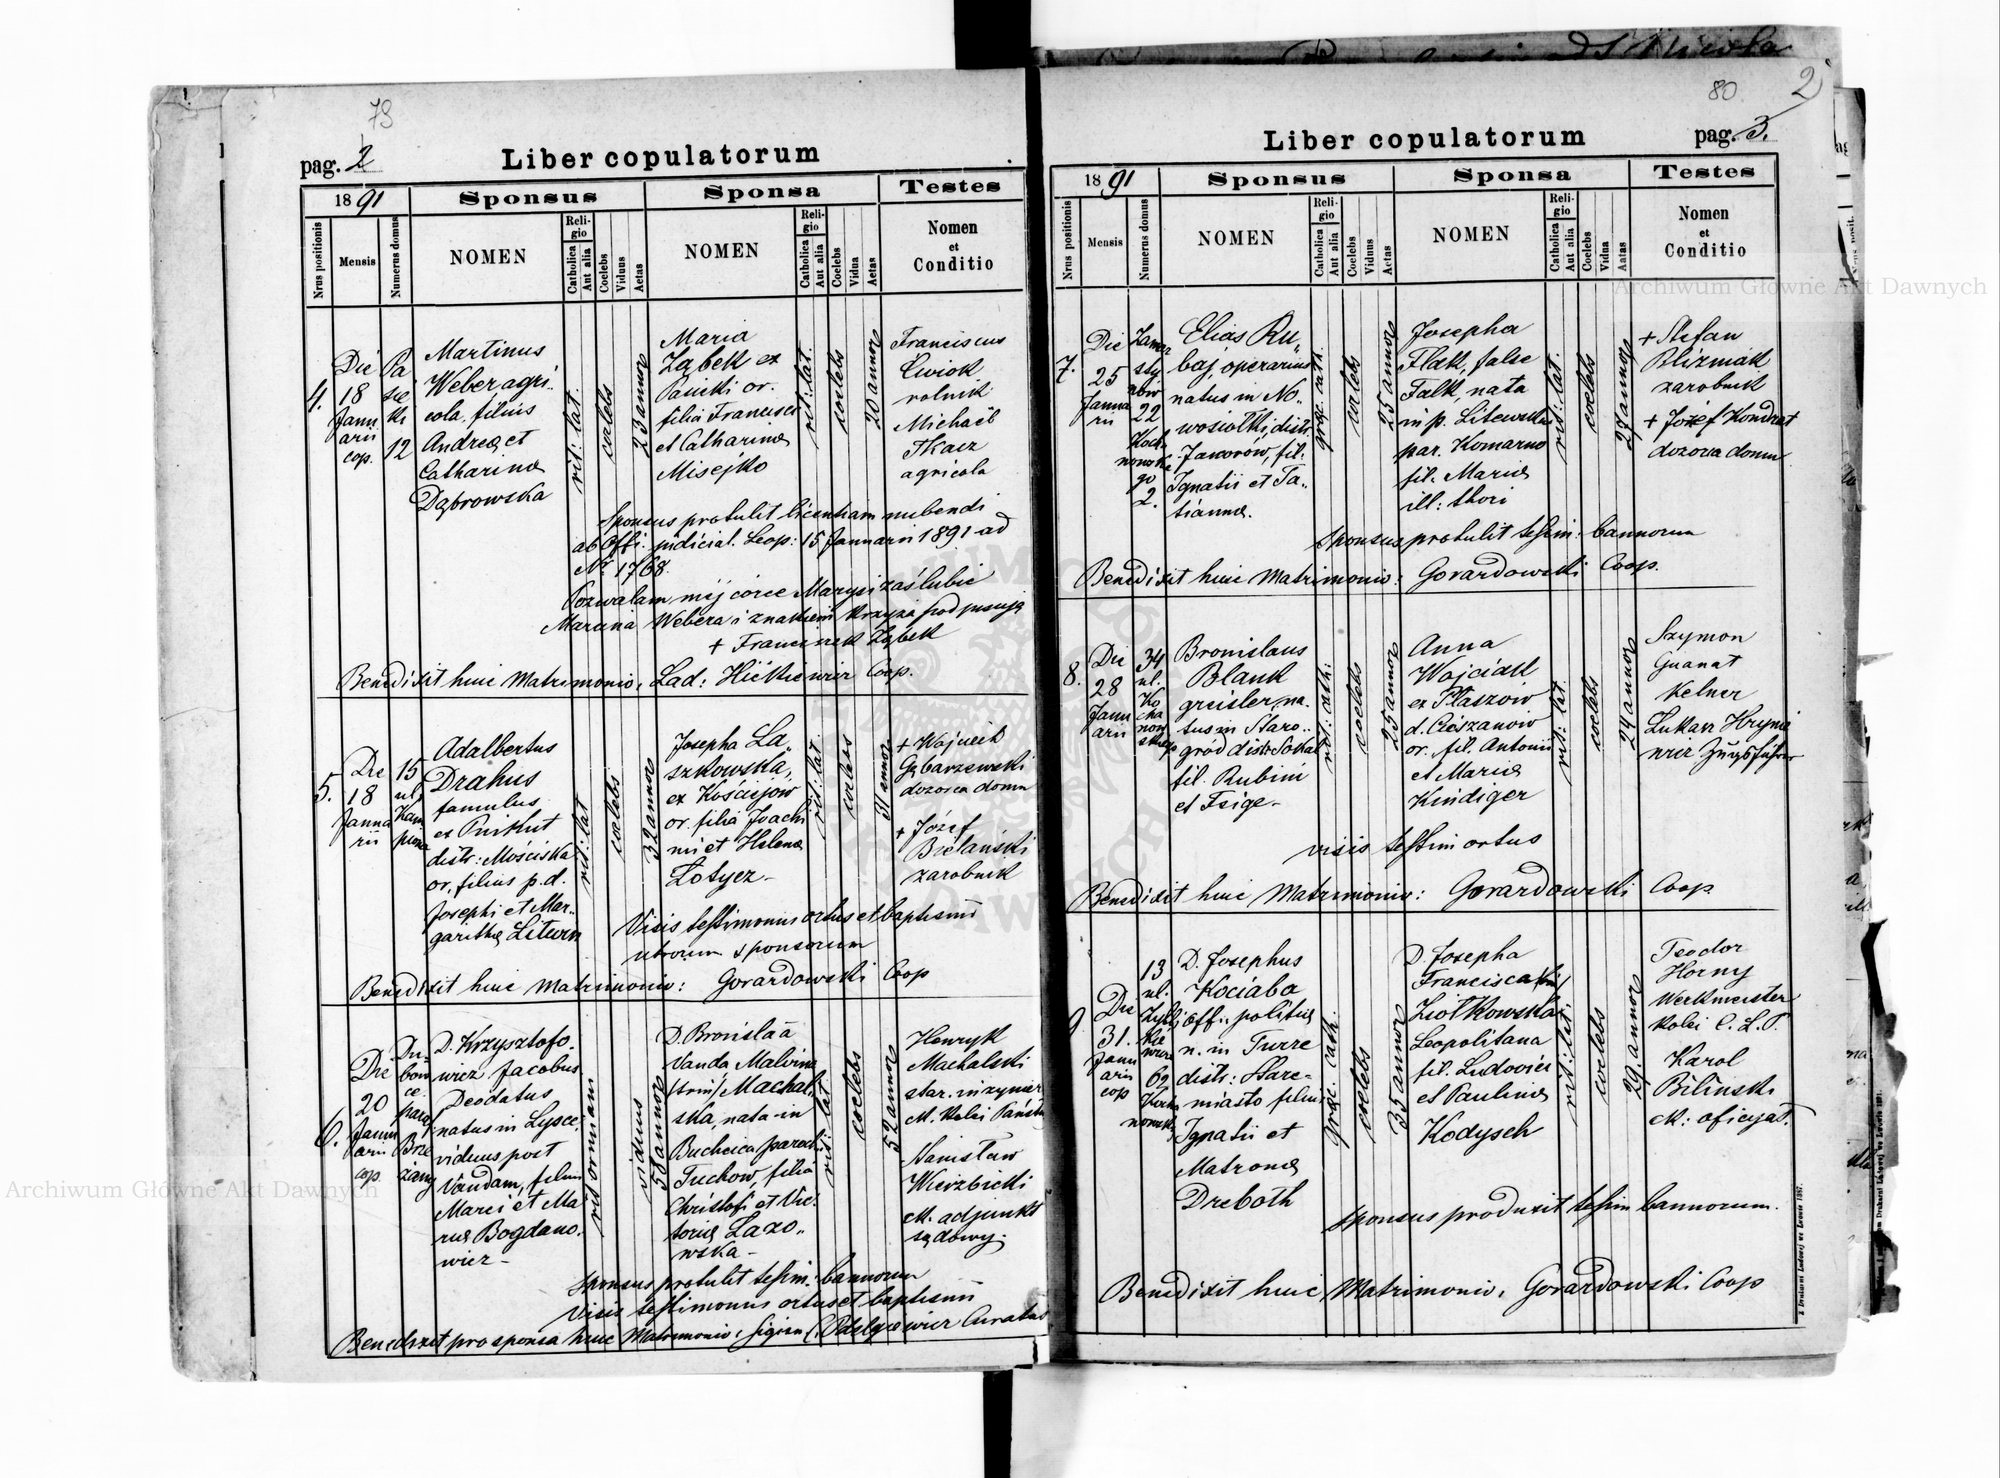 79
pag. 2
Liber copulatorum
1891
Sponsus
Sponsa
Testes
Nrus positionis
Mensis
Numerus domus
NOMEN
Religio
Catholica
Aut alia
Coelebs
Viduus
Aetas
NOMEN
Religio
Catholica
Aut alia
Coelebs
Vidua
Aetas
Nomen
et
Conditio
4.
Die
18
Janu
arii
cop.
Pa
sie
ki
12
Martinus
Weber agri-
cola, filius
Andreæ et
Catharinæ
Dąbrowska
rit: lat.
coelebs
23 annor
Maria
Ząbek ex
Pasieki or.
filia Francisci
et Catharinæ
Misejko
rit: lat.
coelebs
20 annor
Franciscus
Ćwiok
rolnik
Michaël
Tkacz
agricola
Sponsus protulit licentiam nubendi
ab Offi: judicial. Leop: 15 Januarii 1891 ad
N. 1768.
Pozwalam mej córce Marysi zaślubić
Marcina Webera i znakiem krzyża podpisuję
+ Franciszek Ząbek
Benedixit huic Matrimonio: Lad: Hićkiewicz Coop.
5.
Die
18
Janua
rii
15
ul.
Kam
piana
Adalbertus
Drahus
famulus
ex Pnikut
distr: Mościska
or. filius p.d.
Josephi et Mar-
garithæ Litwin
rit: lat
coelebs
32 annor
Josepha La-
szkowska,
ex Kościejow
or. filia Joachi
mi et Helenæ
Łotycz-
rit: lat.
coelebs
31 annor
+ Wojciech
Gębarzewski
dozorca domu
+ Józef
Bielański
zarobnik
Visis testimoniis ortus et baptismi
utrorum sponsorum
Benedixit huic Matrimonio: Gorardowski Coop
6.
Die
20
Janu
arii
cop.
Du-
bow
ce
paraf
Brze
ziany
D. Krzysztofo-
wicz Jacobus
Deodatus
natus in Lysce,
viduus post
Vandam, filius
Marci et Ma
riæ Bogdano-
wicz-
rit orman
viduus
58 annor
D. Bronislaa
Vanda Malvina
(trin) Machal-
ska, nata in
Buchcica paroch
Tuchow, filia
Christofi et Vic-
toriæ Lazo-
wska-
rit: lat
coelebs
52 annor
Henryk
Machalski
star. inżynier
ck. kolei Państw
Stanisław
Wierzbicki
ck. adjunkt
sądowy.
Sponsus protulit testim: bannorum
Visis testimoniis ortus et baptismi
Benedixit pro sponsa huic Matrimonio: Curatus
80
2
Liber copulatorum
pag. 3.
1891
Sponsus
Sponsa
Testes
Nrus positionis
Mensis
Numerus domus
NOMEN
Religio
Catholica
Aut alia
Coelebs
Viduus
Aetas
NOMEN
Religio
Catholica
Aut alia
Coelebs
Vidua
Aatas
Nomen
et
Conditio
7.
Die
25
Janua
rii
Zamar
sty
nów
22
Koch
nowskie
go
2.
Elias Ru-
baj, operarius
natus in No-
wosiołki, distr.
Jaworów, fil.
Ignatii et Ta-
tiannæ.
græc. cath.
coelebs
25 annor
Josepha
Flak, false
Falk, nata
in p. Litewska
par. Komarno
fil. Mariæ
ill: thori
rit: lat.
coelebs
27 annor
+ Stefan
Blizniak
zarobnik
+ Józef Kondrat
dozorca domu
Sponsus protulit testim: bannorum
Benedixit huic Matrimonio: Gorardowski Coop.
8.
Die
28
Janu
arii
34
ul.
Ko
cha
now
skiego
Bronislaus
Blank
greisler, na-
tus in Staro-
gród distr Sokal
fil. Rubini
et Feige-
rit: cath:
coelebs
25 annor
Anna
Wojciak
ex Płaszow
d. Cieszanow
or. fil. Antonii
et Mariæ
Kindiger
rit: lat.
coelebs
24 annor
Szymon
Guanat
kelner
Lukasz Hrynie
wicz Zugsführer
visis testim ortus
Benedixit huic Matrimonio: Gorardowski Coop
9
Die
31.
Janu
arii
cop
13
ul.
Zybli
kie
wicza
62
Kocha
nowsk
D. Josephus
Kociaba
off: politiæ
n. in Turze
distr: Stare-
miasto filius
Ignatii et
Matronæ
Dreboth
græc. cath.
coelebs
35 annor
D. Josepha
Francisca (bin)
Ziółkowska
Leopolitana
fil. Ludovici
et Paulinæ
Kodysch
rit: lat
coelebs
29. annor
Teodor
Horny
Werkmeister
kolei C. L. P.
Karol
Biliński
ck: oficyał.
Sponsus produxit testim bannorum.
Benedixit huic Matrimonio: Gorardowski Coop
Z Drukarni Ludowej we Lwowie 1887.
Archiwum Główne Akt Dawnych
Archiwum Główne Akt Dawnych